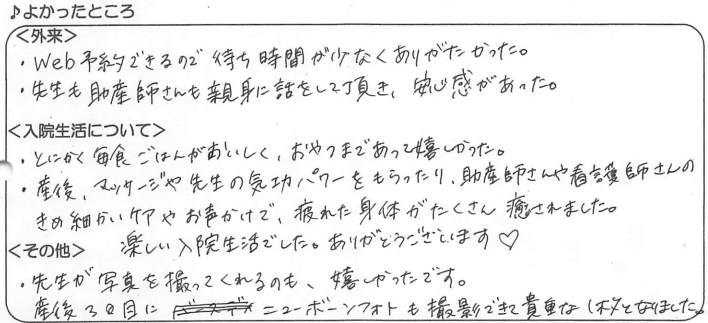 ♪よかったところ
<外来>
・Web予約できるので待ち時間が少なくありがたかった。
・先生も助産師さんも親身に話をして頂き、安心感があった。
<入院生活について>
・とにかく毎食ごはんがおいしく、おやつまであって嬉しかった。
・産後、マッサージや先生の気功パワーをもらったり、助産師さんや看護師さんの
きめ細かいケアやお声かけで、疲れた身体がたくさん癒されました。
楽しい入院生活でした。ありがとうございます♡
<その他>
・先生が写真を撮ってくれるのも、嬉しかったです。
産後3日目に ニューボーンフォトも撮影できて貴重な1枚となりました。